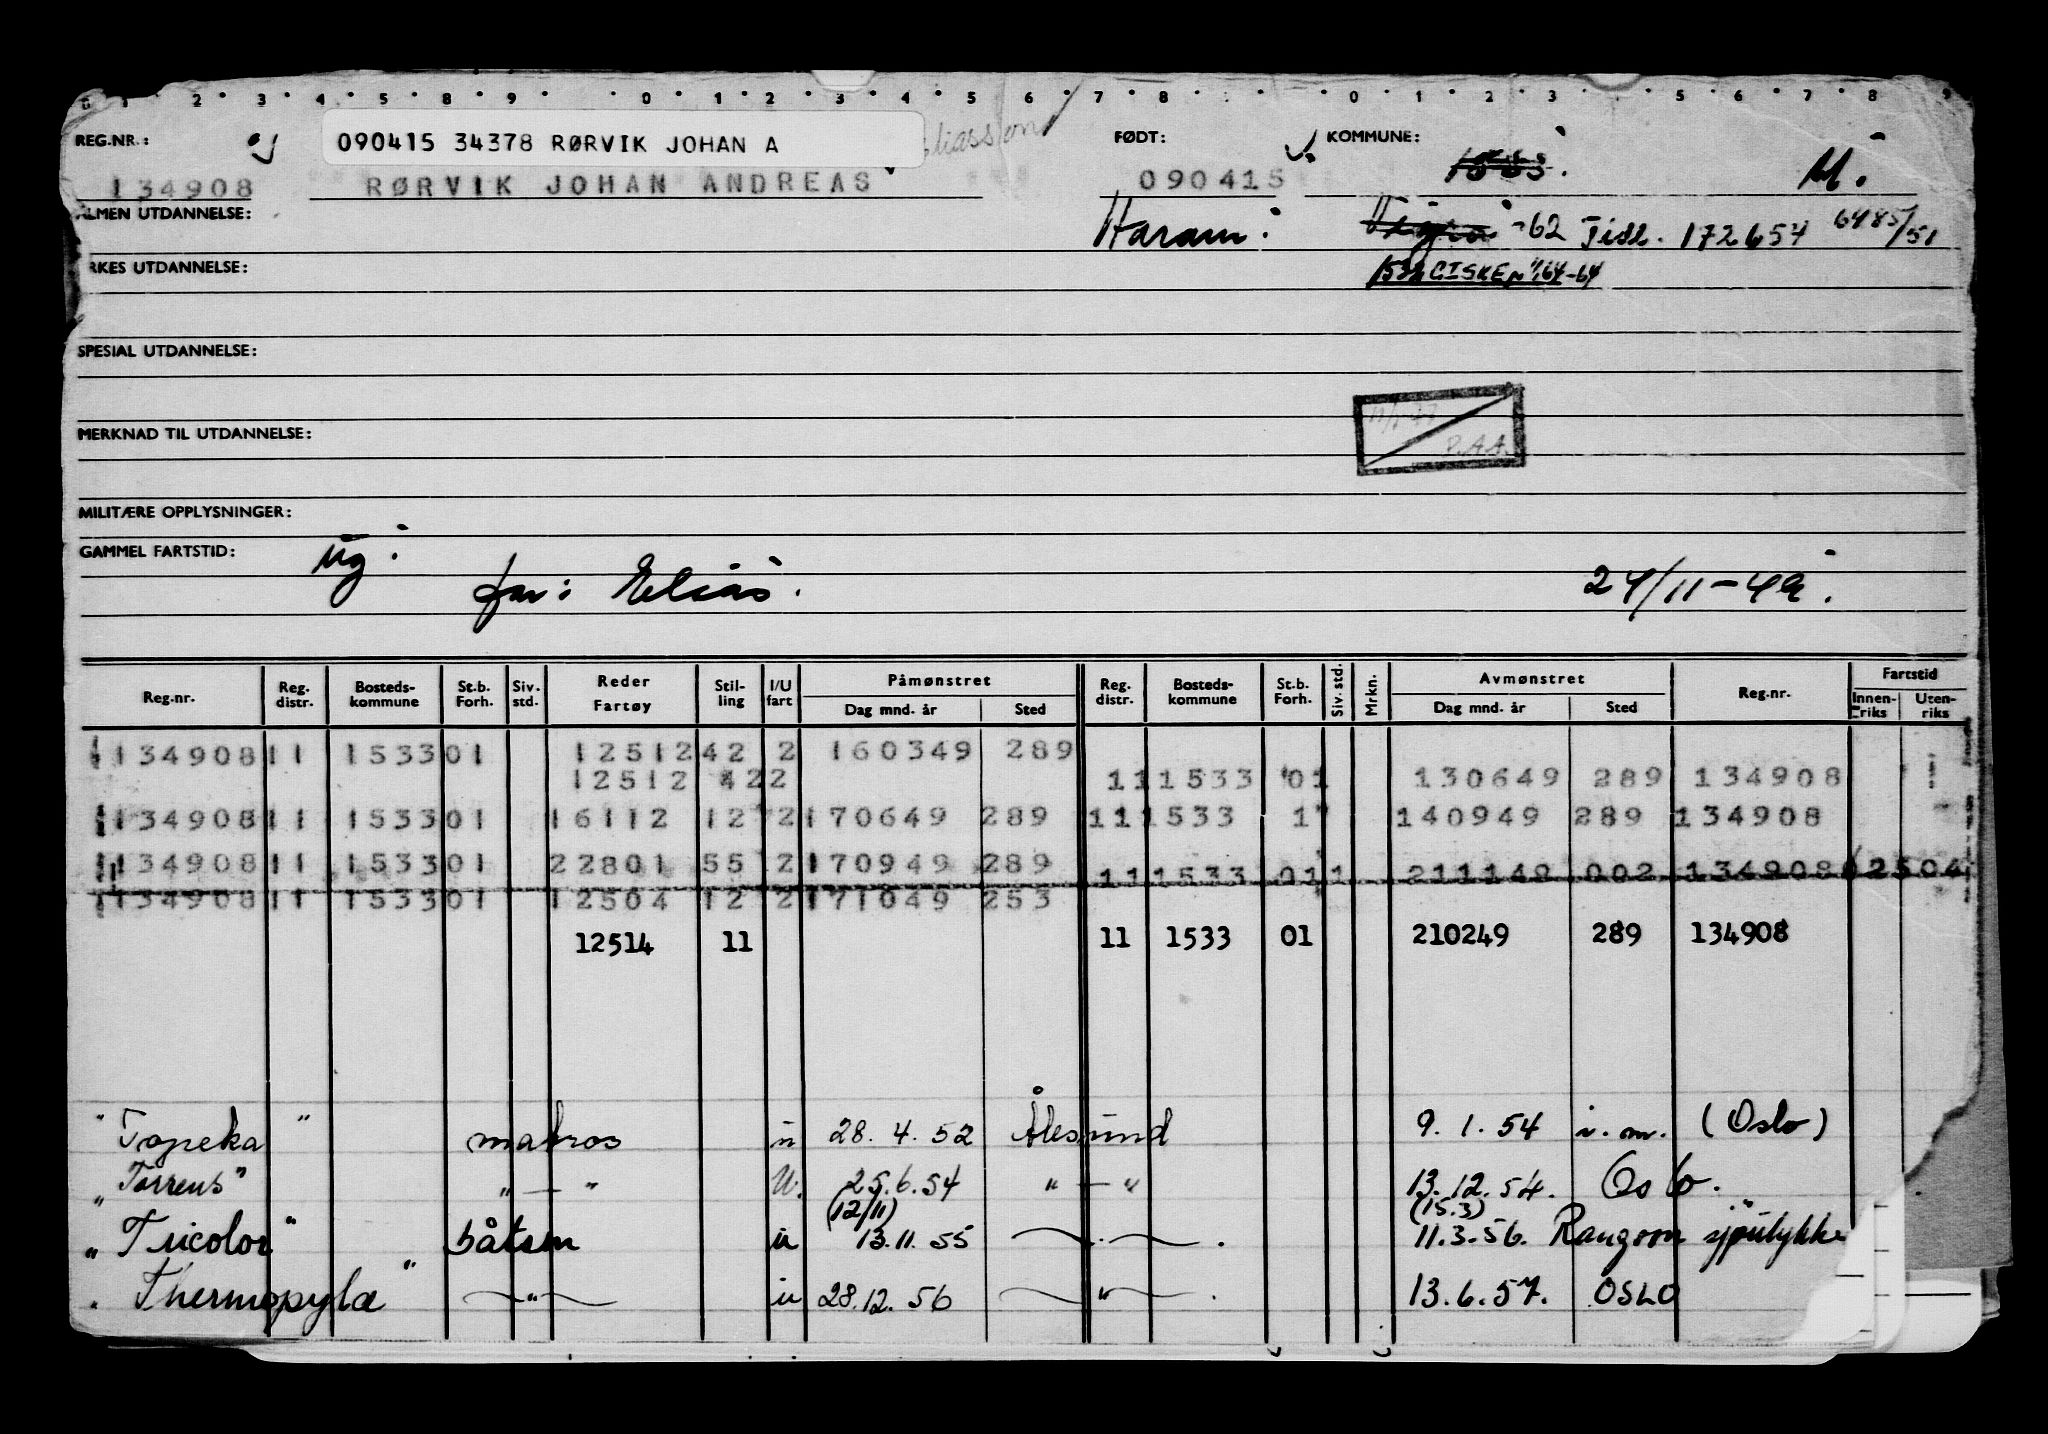 REG.NR.: 090415 34378 RØRVIK JOHAN A FØDT: KOMMUNE:
134908 RØRVIK JOHAN ANDREAS 090415 M.
ALMEN UTDANNELSE: Haram. Vigra -62 Tidl. 172654 6485/51
RKES UTDANNELSE: 1532 GISKE 1/1 64-64
SPESIAL UTDANNELSE:
MERKNAD TIL UTDANNELSE: P.A.A.
MILITÆRE OPPLYSNINGER:
GAMMEL FARTSTID: ug.
far: Elias. 24/11-49.
Reg.nr. Reg. distr. Bosteds-kommune St.b. Forh. Siv. std. Reder Fartøy Stil-ling I/U fart Påmønstret Dag mnd. år Sted Reg. distr. Bosteds-kommune St.b. Forh. Siv. std. Mrkn. Avmønstret Dag mnd. år Sted Reg.nr. Fartstid Innen-riks Uten-riks
134908 11 1533 01 12512 42 2 160349 289
12512 42 2 11 1533 01 130649 289 134908
134908 11 1533 01 16112 12 2 170649 289 11 1533 1 140949 289 134908
134908 11 1533 01 22801 55 2 170949 289
11 1533 01 1 211149 002 134908 12504
134908 11 1533 01 12504 12 2 171049 253
12514 11 11 1533 01 210249 289 134908
"Topeka" matros u 28.4.52 Ålesund 9.1.54 i.m. (Oslo)
"Torrens" " — " U. 25.6.54 " — " 13.12.54. Oslo.
(12/11) (15.3)
"Tricolor" båtsm u 13.11.55 — " — . 11.3.56. Rangoon sjøulykke
"Thermopylæ" — " — u 28.12.56 — " — . 13.6.57. OSLO